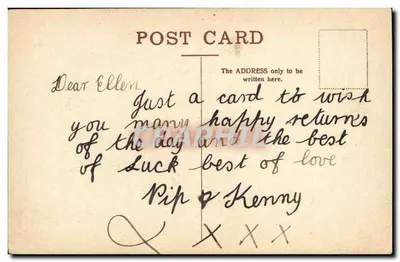 POST CARD
The ADDRESS only to be
written here.
Dear Ellen
Just a card to wish
you many happy returns
of the day and the best
of Luck best of love
Pip & Kenny
X X X